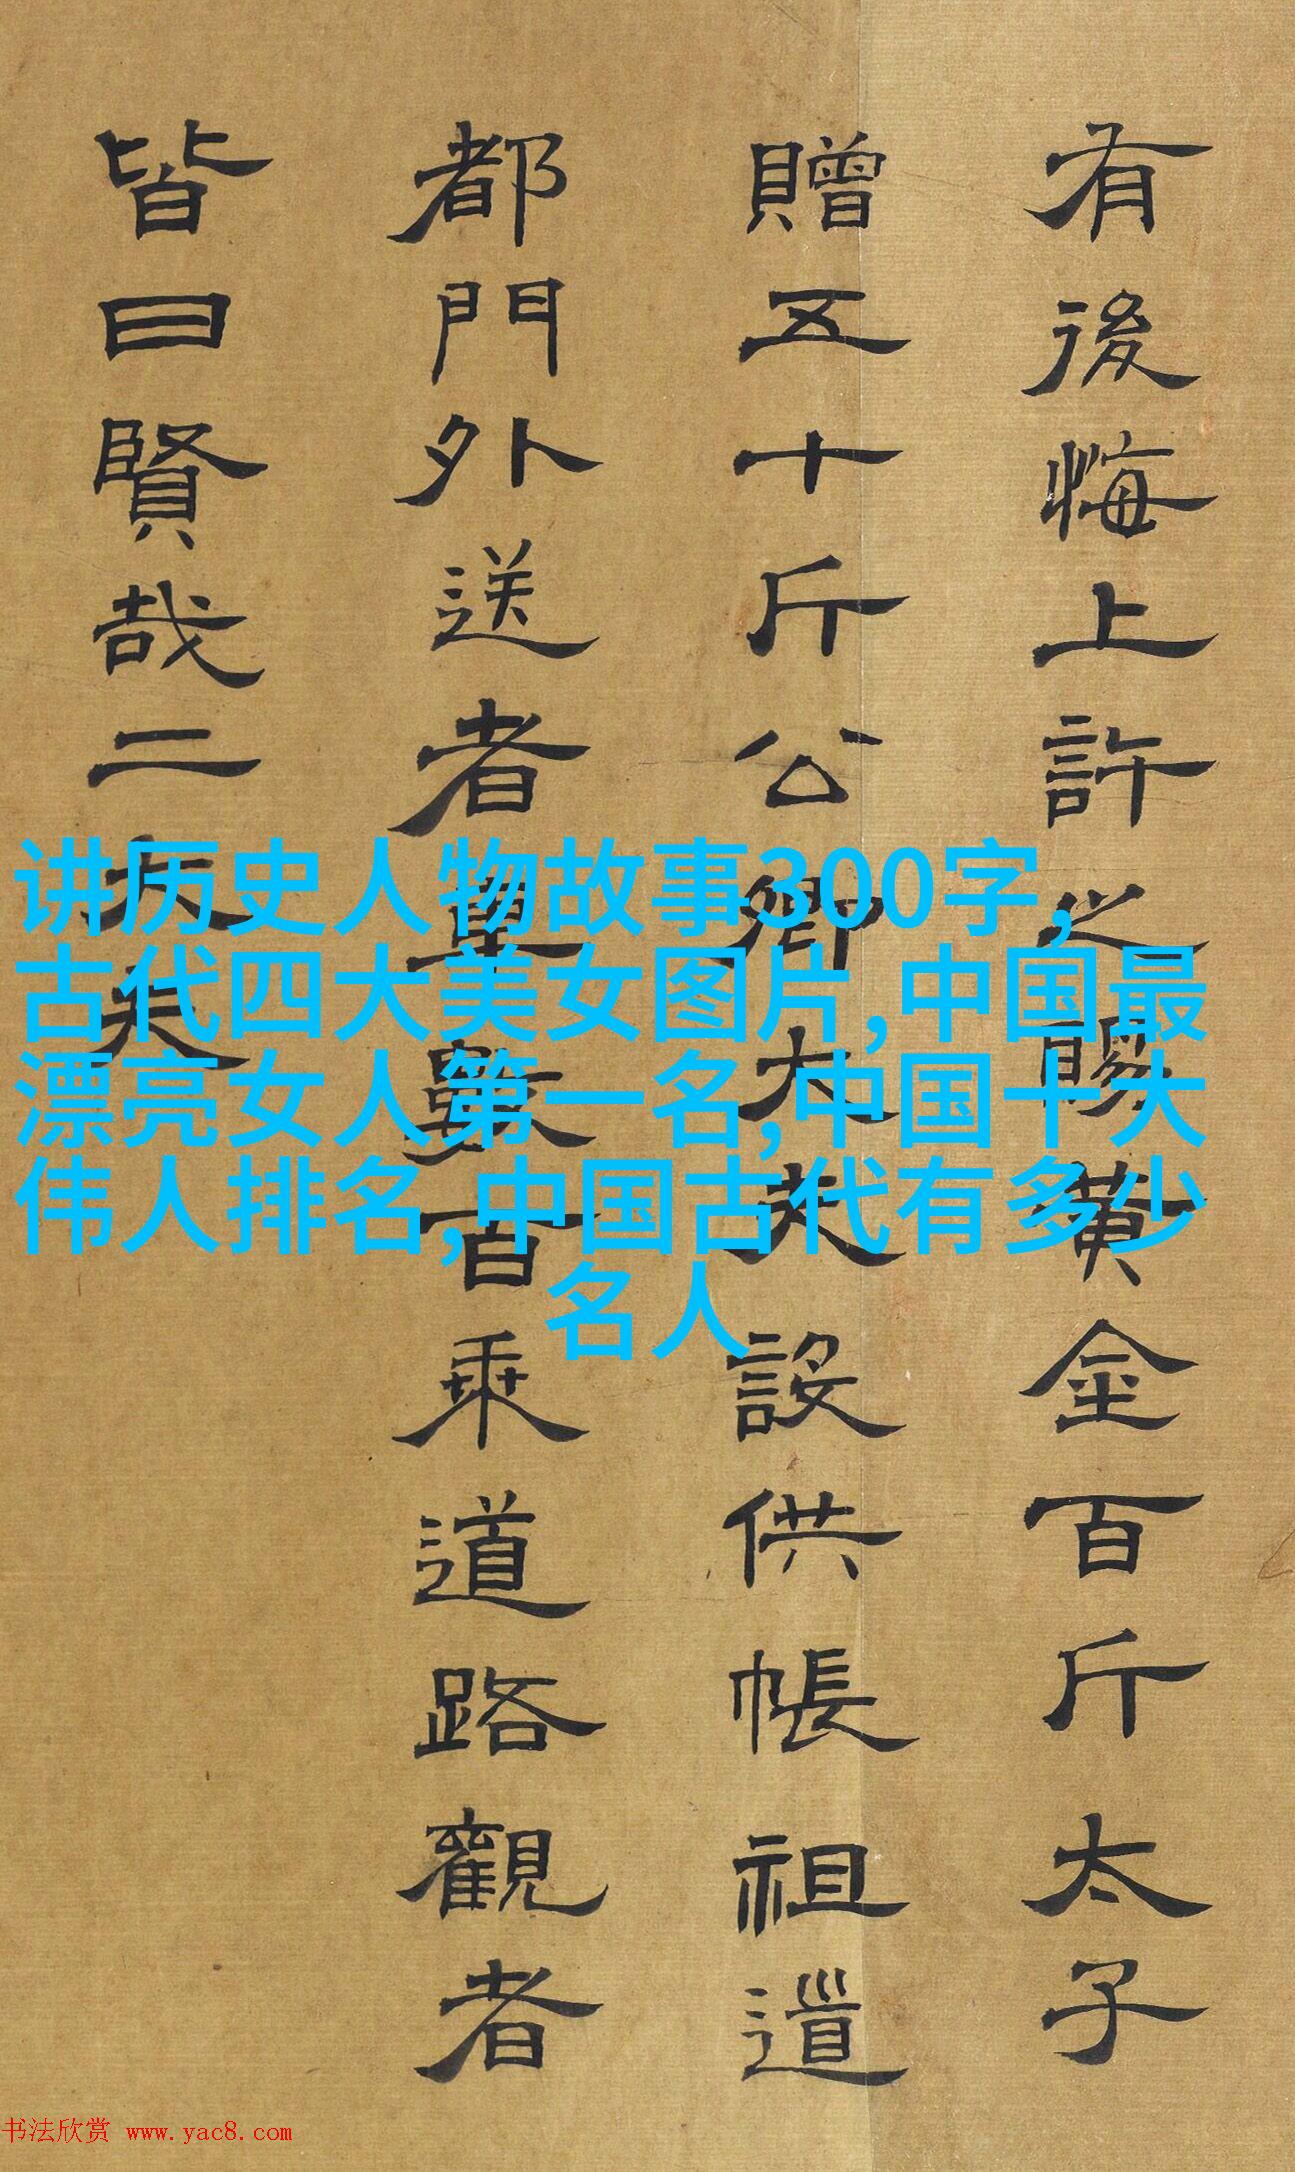 有後悔上許之賜黄金百斤太子
贈五十斤公卿大夫設供帳祖道
都門外送者車數百乘道路觀者
皆曰賢哉二大夫
讲历史人物故事300字,
古代四大美女图片,中国最
漂亮女人第一名,中国十大
伟人排名,中国古代有多少
名人
书法欣赏 www.yac8.com